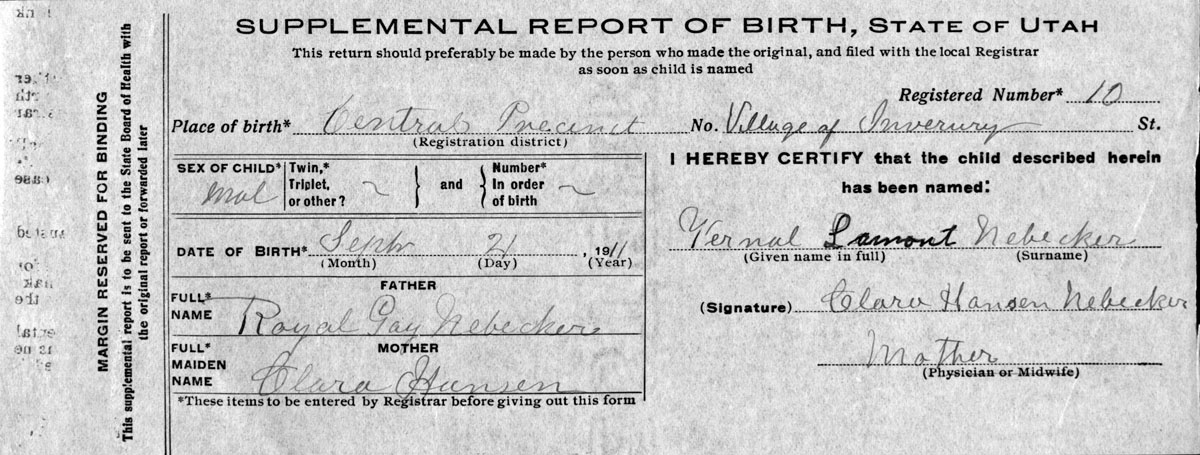 SUPPLEMENTAL REPORT OF BIRTH, STATE OF UTAH
This return should preferably be made by the person who made the original, and filed with the local Registrar
as soon as child is named
Registered Number* 10
Place of birth* Central Precinct No. Village of Inverury St.
(Registration district)
SEX OF CHILD* Mal
Twin,* Triplet, or other? ~ } and { Number* In order of birth ~
DATE OF BIRTH* Sept 21, 1911
(Month) (Day) (Year)
FATHER
FULL* NAME Royal Gay Nebecker
MOTHER
FULL* MAIDEN NAME Clara Hansen
*These items to be entered by Registrar before giving out this form
I HEREBY CERTIFY that the child described herein
has been named:
Vernal Lamont Nebecker
(Given name in full) (Surname)
(Signature) Clara Hansen Nebecker
Mother
(Physician or Midwife)
MARGIN RESERVED FOR BINDING
This supplemental report is to be sent to the State Board of Health with
the original report or forwarded later